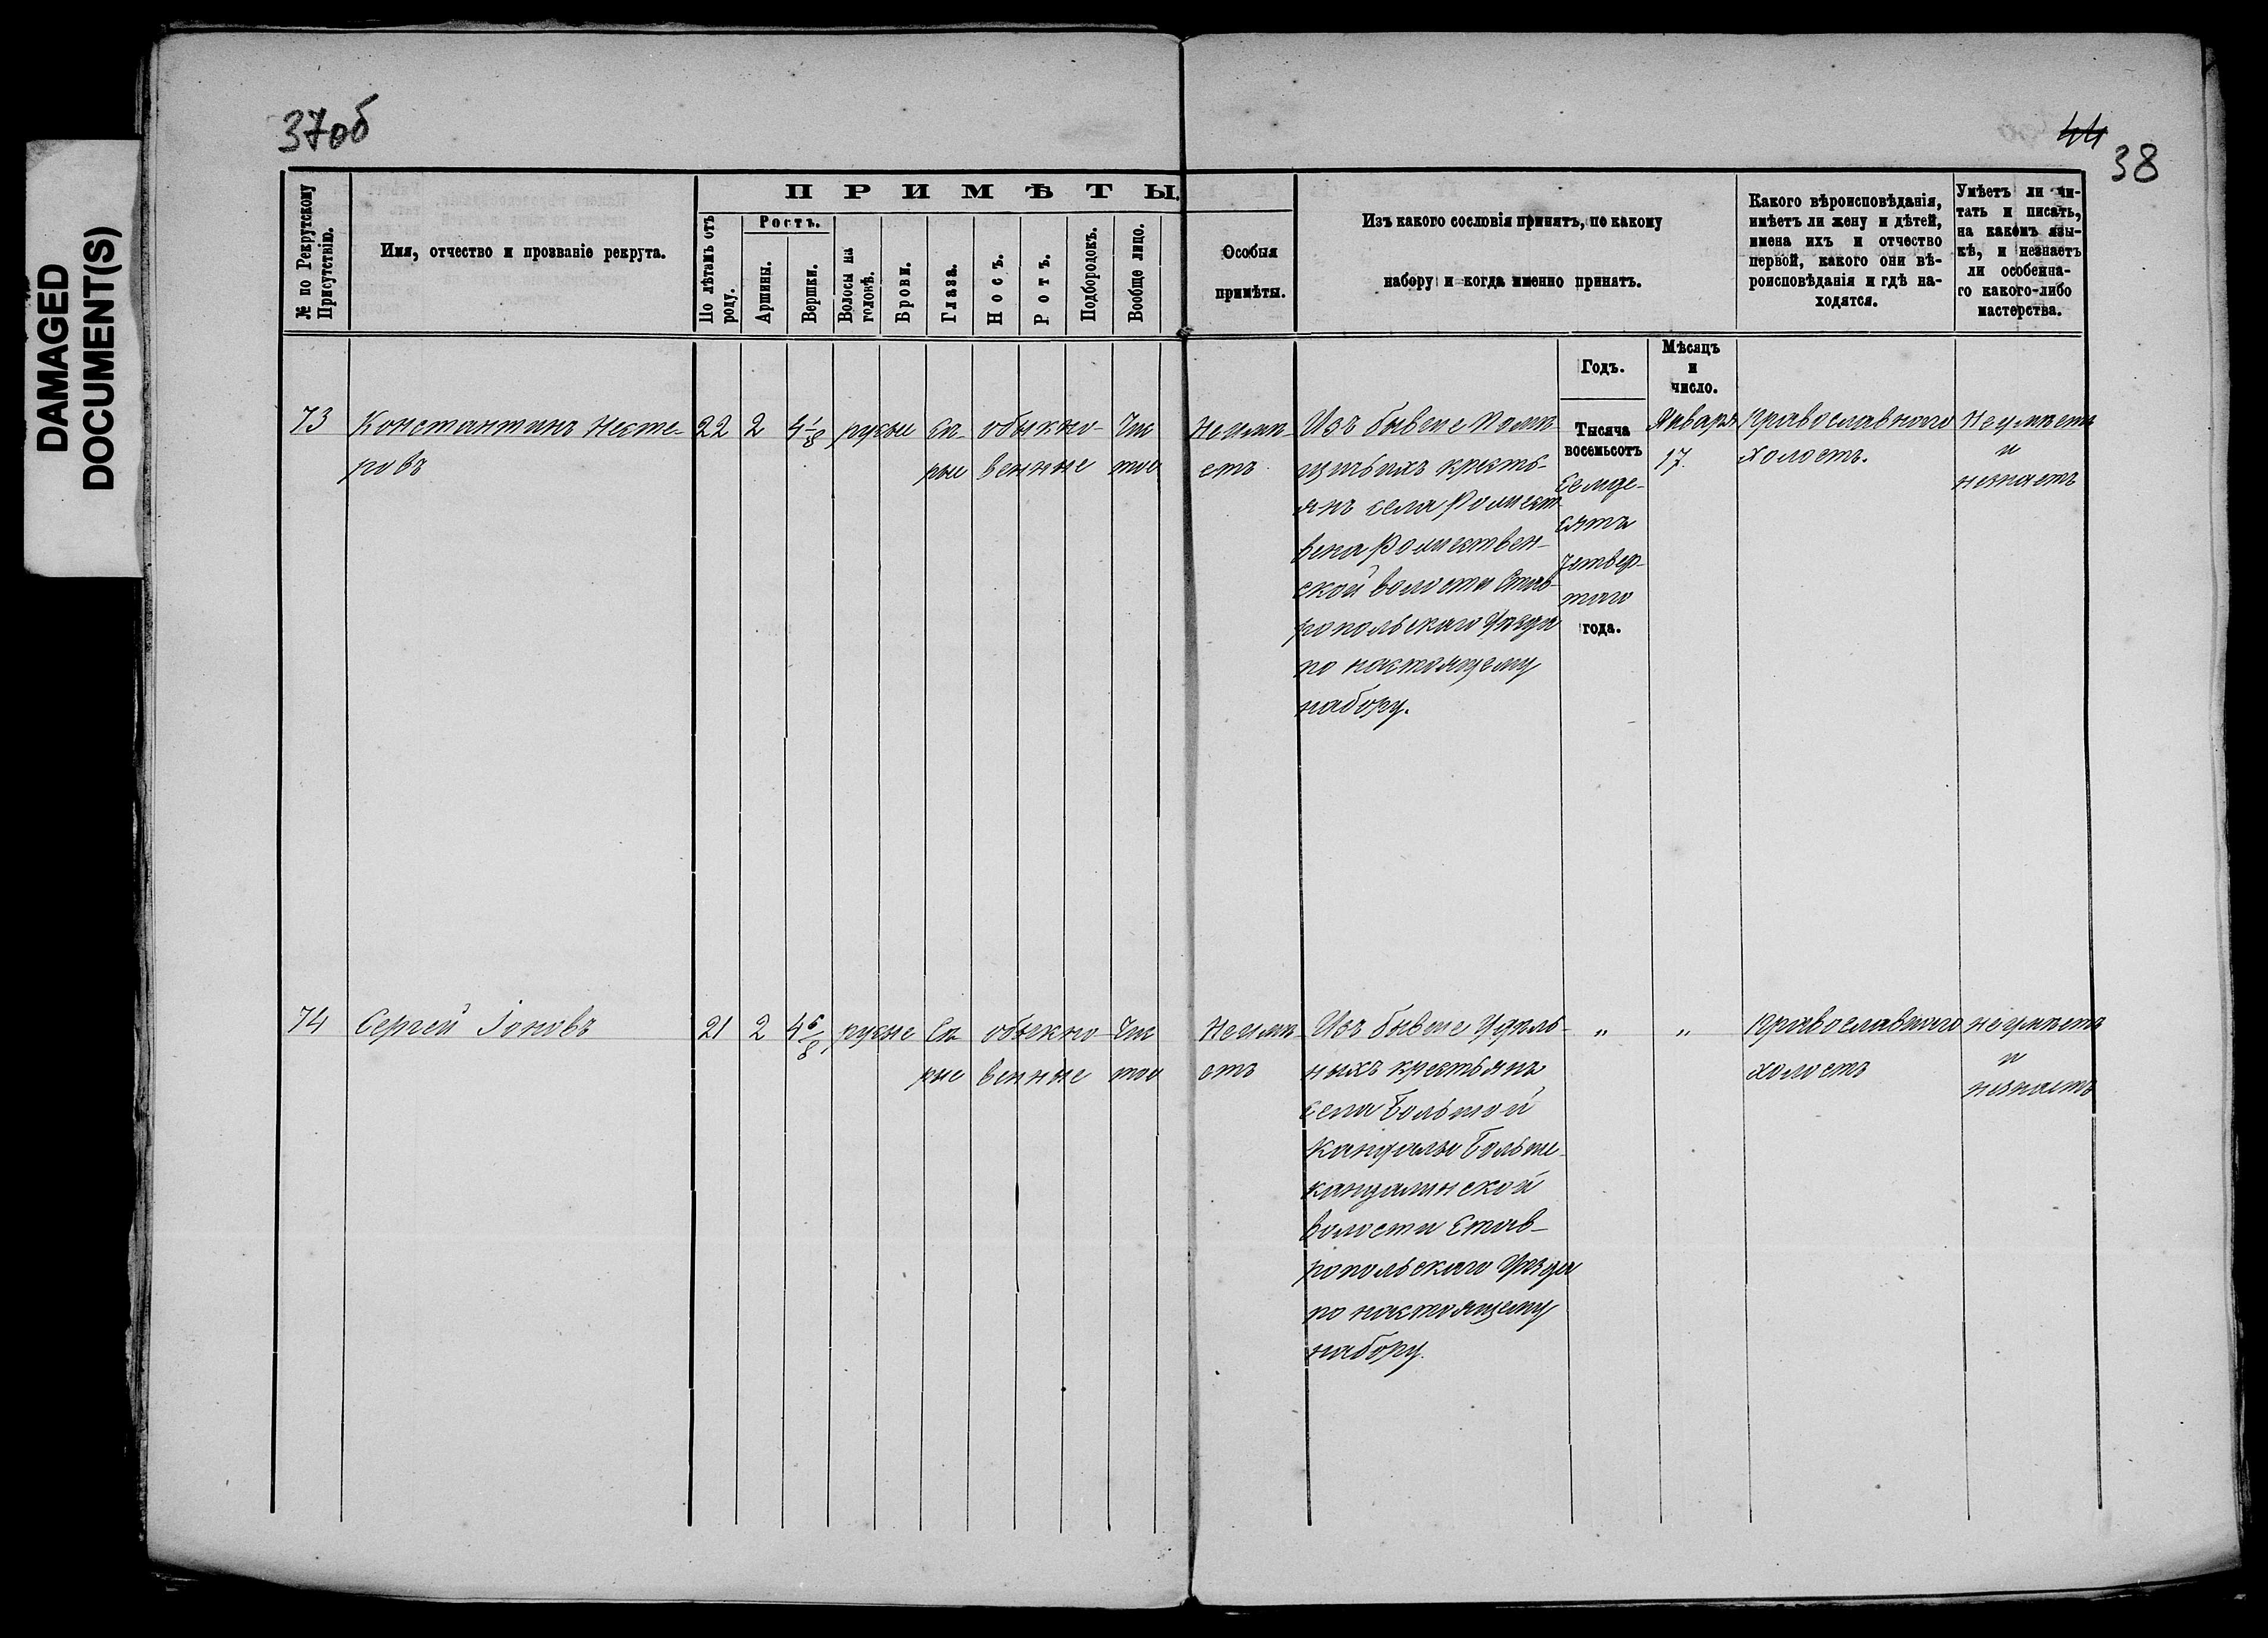 DAMAGED
DOCUMENT(S)
37об
44
38
№ по Рекрутскому
Присутствію.
Имя, отчество и прозваніе рекрута.
ПРИМѢТЫ.
По лѣтамъ отъ
роду.
Ростъ.
Аршины.
Вершки.
Волосы на
головѣ.
Брови.
Глаза.
Носъ.
Ротъ.
Подбородокъ.
Вообще лицо.
Особыя
примѣты.
Изъ какого сословія принятъ, по какому
набору и когда именно принятъ.
Какого вѣроисповѣданія,
имѣетъ ли жену и дѣтей,
имена ихъ и отчество
первой, какого они вѣ-
роисповѣданія и гдѣ на-
ходятся.
Умѣетъ ли чи-
тать и писать,
на какомъ язы-
кѣ, и незнаетъ
ли особенна-
го какого-либо
мастерства.
Годъ.
Мѣсяцъ
и
число.
73
Константинъ Несте-
ровъ
22
2
4 1/8
русые
Сѣ-
рые
обыкно-
венные
Чис
тое
Неимѣ-
етъ
Изъ бывше Помѣ
щичьихъ кресть-
янъ села Рождест-
вена Рождествен-
ской волости Став-
ропольскаго Уѣзда
по настоящему
набору.
Тысяча
восемьсотъ
Семьде-
сятъ
четвер-
таго
года.
Января
17.
Православнаго
холостъ.
Неумѣетъ
и
незнаетъ
74
Сергей Іоновъ
21
2
4 6/8
русые
Сѣ
рые
обыкно-
венные
Чис
тое
Неимѣ-
етъ
Изъ бывше Удѣль-
ныхъ крестьянъ
села Большой
Кандалы Больше-
кандалинской
волости Став-
ропольскаго Уѣзда
по настоящему
набору.
„
„
Православнаго
холостъ
неумѣетъ
и
незнаетъ